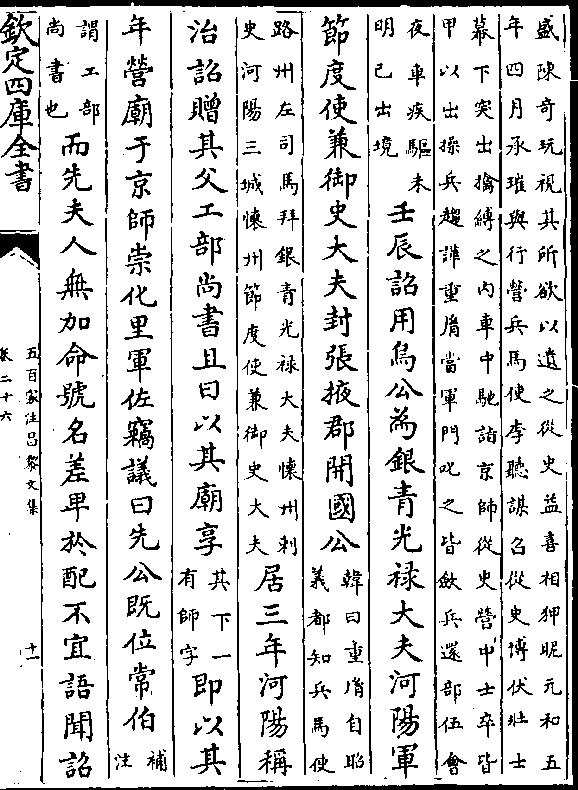 盛陳奇玩視其所欲以遺之從史益喜相狎昵元和五
年四月承璀與行營兵馬使李聽謀召從史博伏壯士
幕下突出擒縛之内車中馳詣京師從史營中士卒皆
甲以出操兵趨譁重胤當軍門叱之皆斂兵還部伍會
夜車疾驅未
明已出境
壬辰詔用烏公為銀青光禄大夫河陽軍
節度使兼御史大夫封張掖郡開國公
韓曰重胤自昭
義都知兵馬使
路州左司馬拜銀青光禄大夫懷州刺
史河陽三城懷州節度使兼御史大夫
居三年河陽稱
治詔贈其父工部尚書且曰以其廟享
其下一
有師字
即以其
年營廟于京師崇化里軍佐竊議曰先公既位常伯
補
注
謂工部
尚書也
而先夫人無加命號名差卑於配不宜語聞詔
欽定四庫全書
五百家注昌黎文集
卷二十六
十一